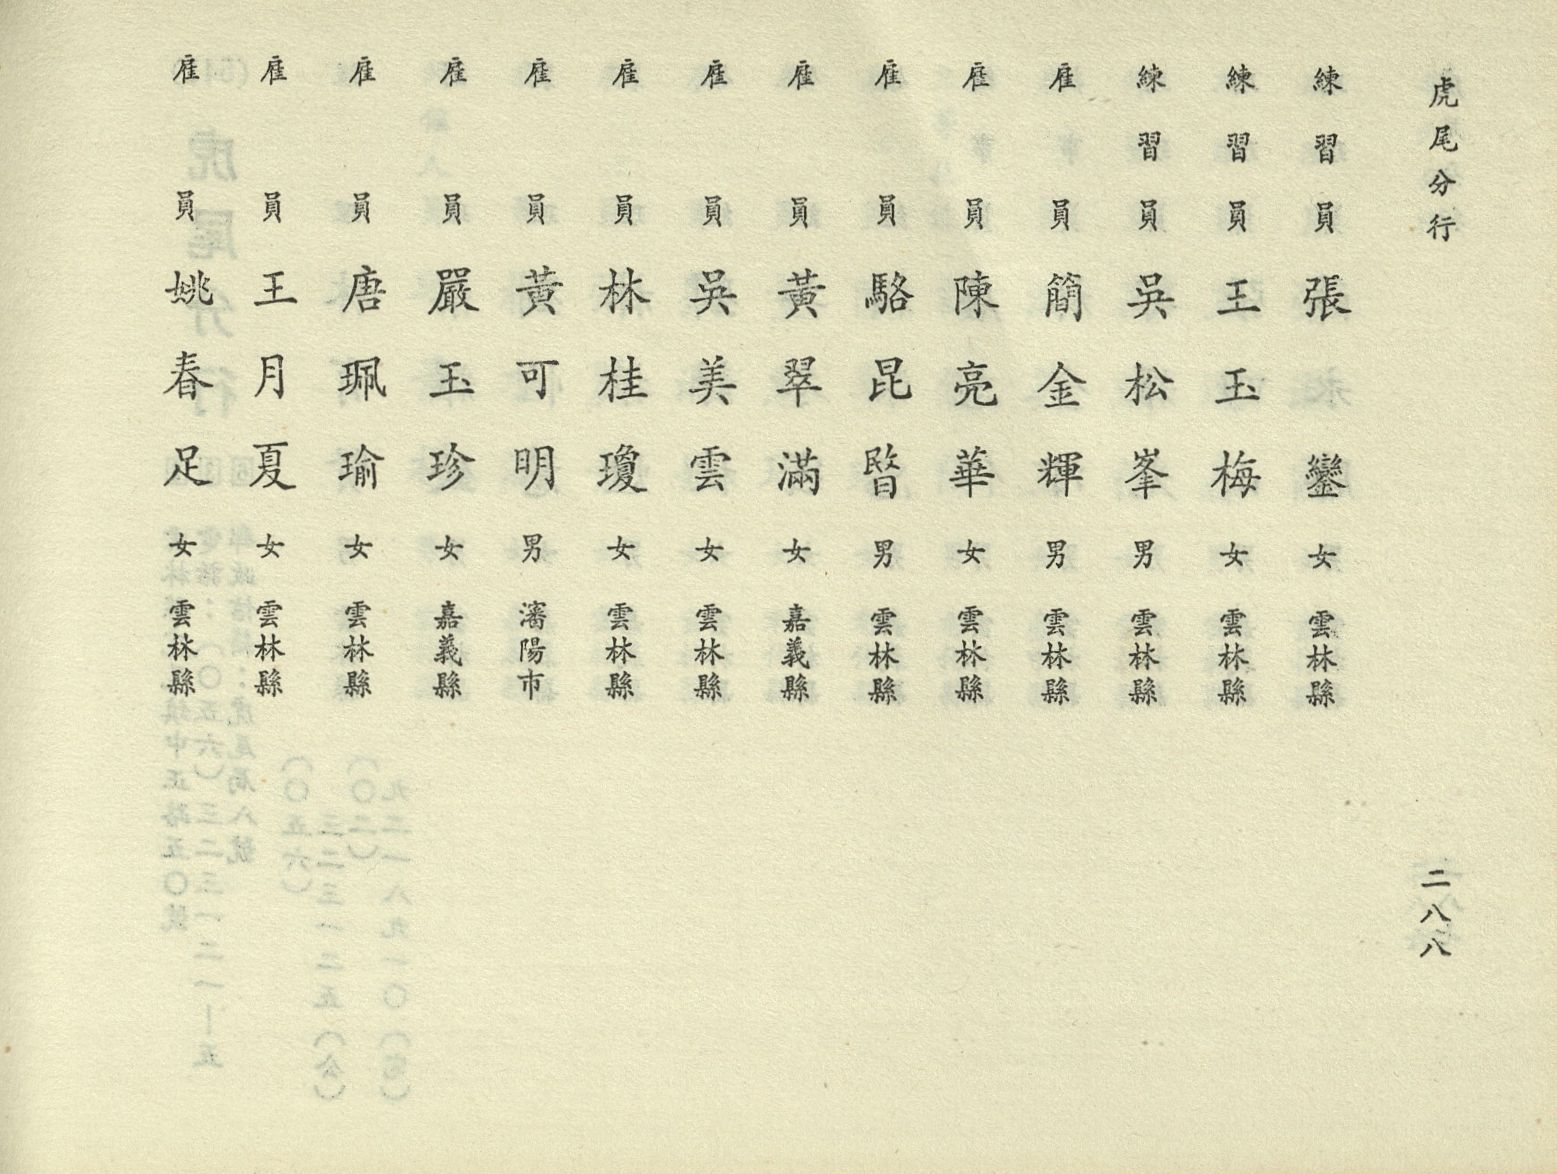 虎尾分行
二八八
練習員 張鑾 女 雲林縣
練習員 王玉梅 女 雲林縣
練習員 吳松峯 男 雲林縣
雇員 簡金輝 男 雲林縣
雇員 陳亮華 女 雲林縣
雇員 駱昆 男 雲林縣
雇員 黃翠滿 女 嘉義縣
雇員 吳美雲 女 雲林縣
雇員 林桂瓊 女 雲林縣
雇員 黃可明 男 瀋陽市
雇員 嚴玉珍 女 嘉義縣
雇員 唐珮瑜 女 雲林縣
雇員 王月夏 女 雲林縣
雇員 姚春足 女 雲林縣